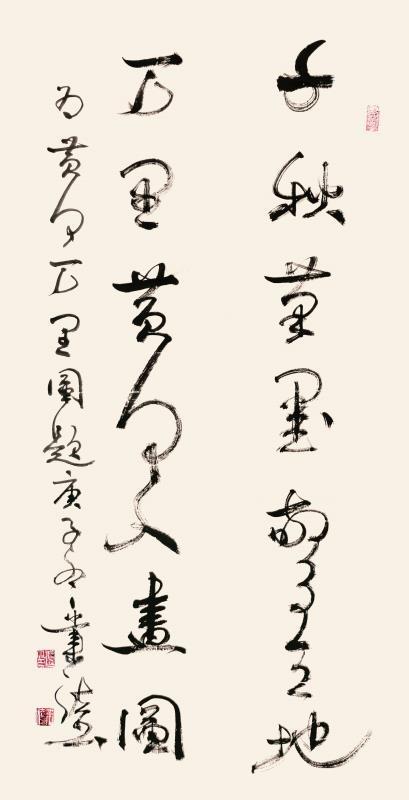 千秋筆墨驚天地
万里黄河入畫圖
为黄河万里圖題庚子冬